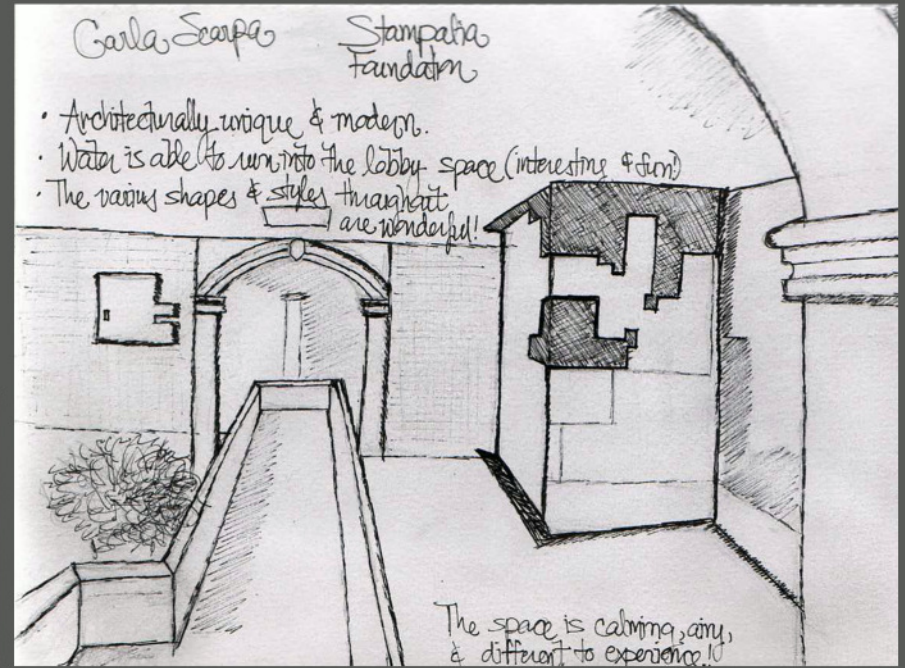 Carla Scarpa
Stampalia
Foundation
• Architecturally unique & modern.
• Water is able to run into the lobby space (interesting & fun)
• The various shapes & styles throughout
are wonderful!
The space is calming, airy,
& different to experience!!